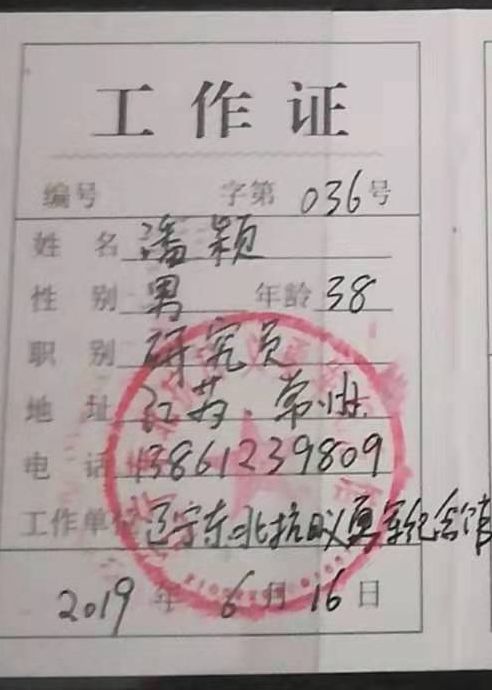 工作证
编号 字第 036 号
姓名 潘颖
性别 男 年龄 38
职别 研究员
地址 江苏.常州
电话 13861239809
工作单位 辽宁东北抗日义勇军纪念馆
2019 年 6 月 16 日